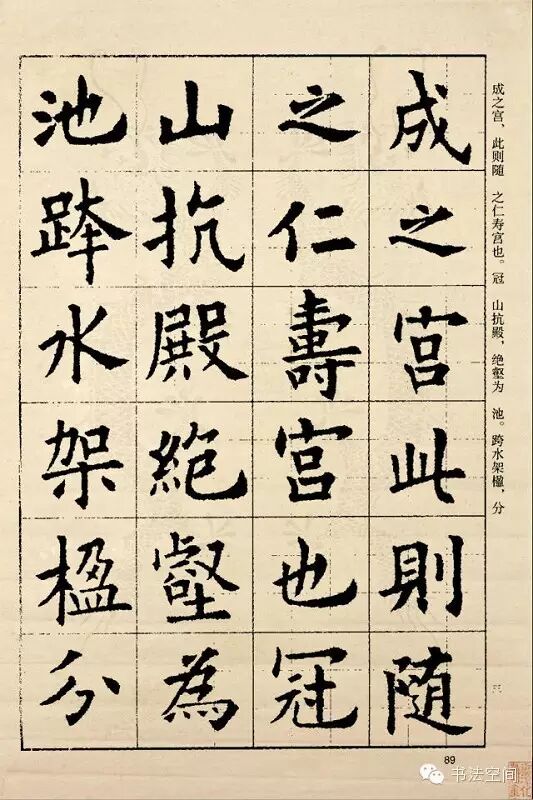 成之宮此則随
之仁壽宮也冠
山抗殿絶壑為
池跨水架楹分
成之宫，此则随　之仁寿宫也。冠　山抗殿，绝壑为　池。跨水架楹，分
89
书法空间